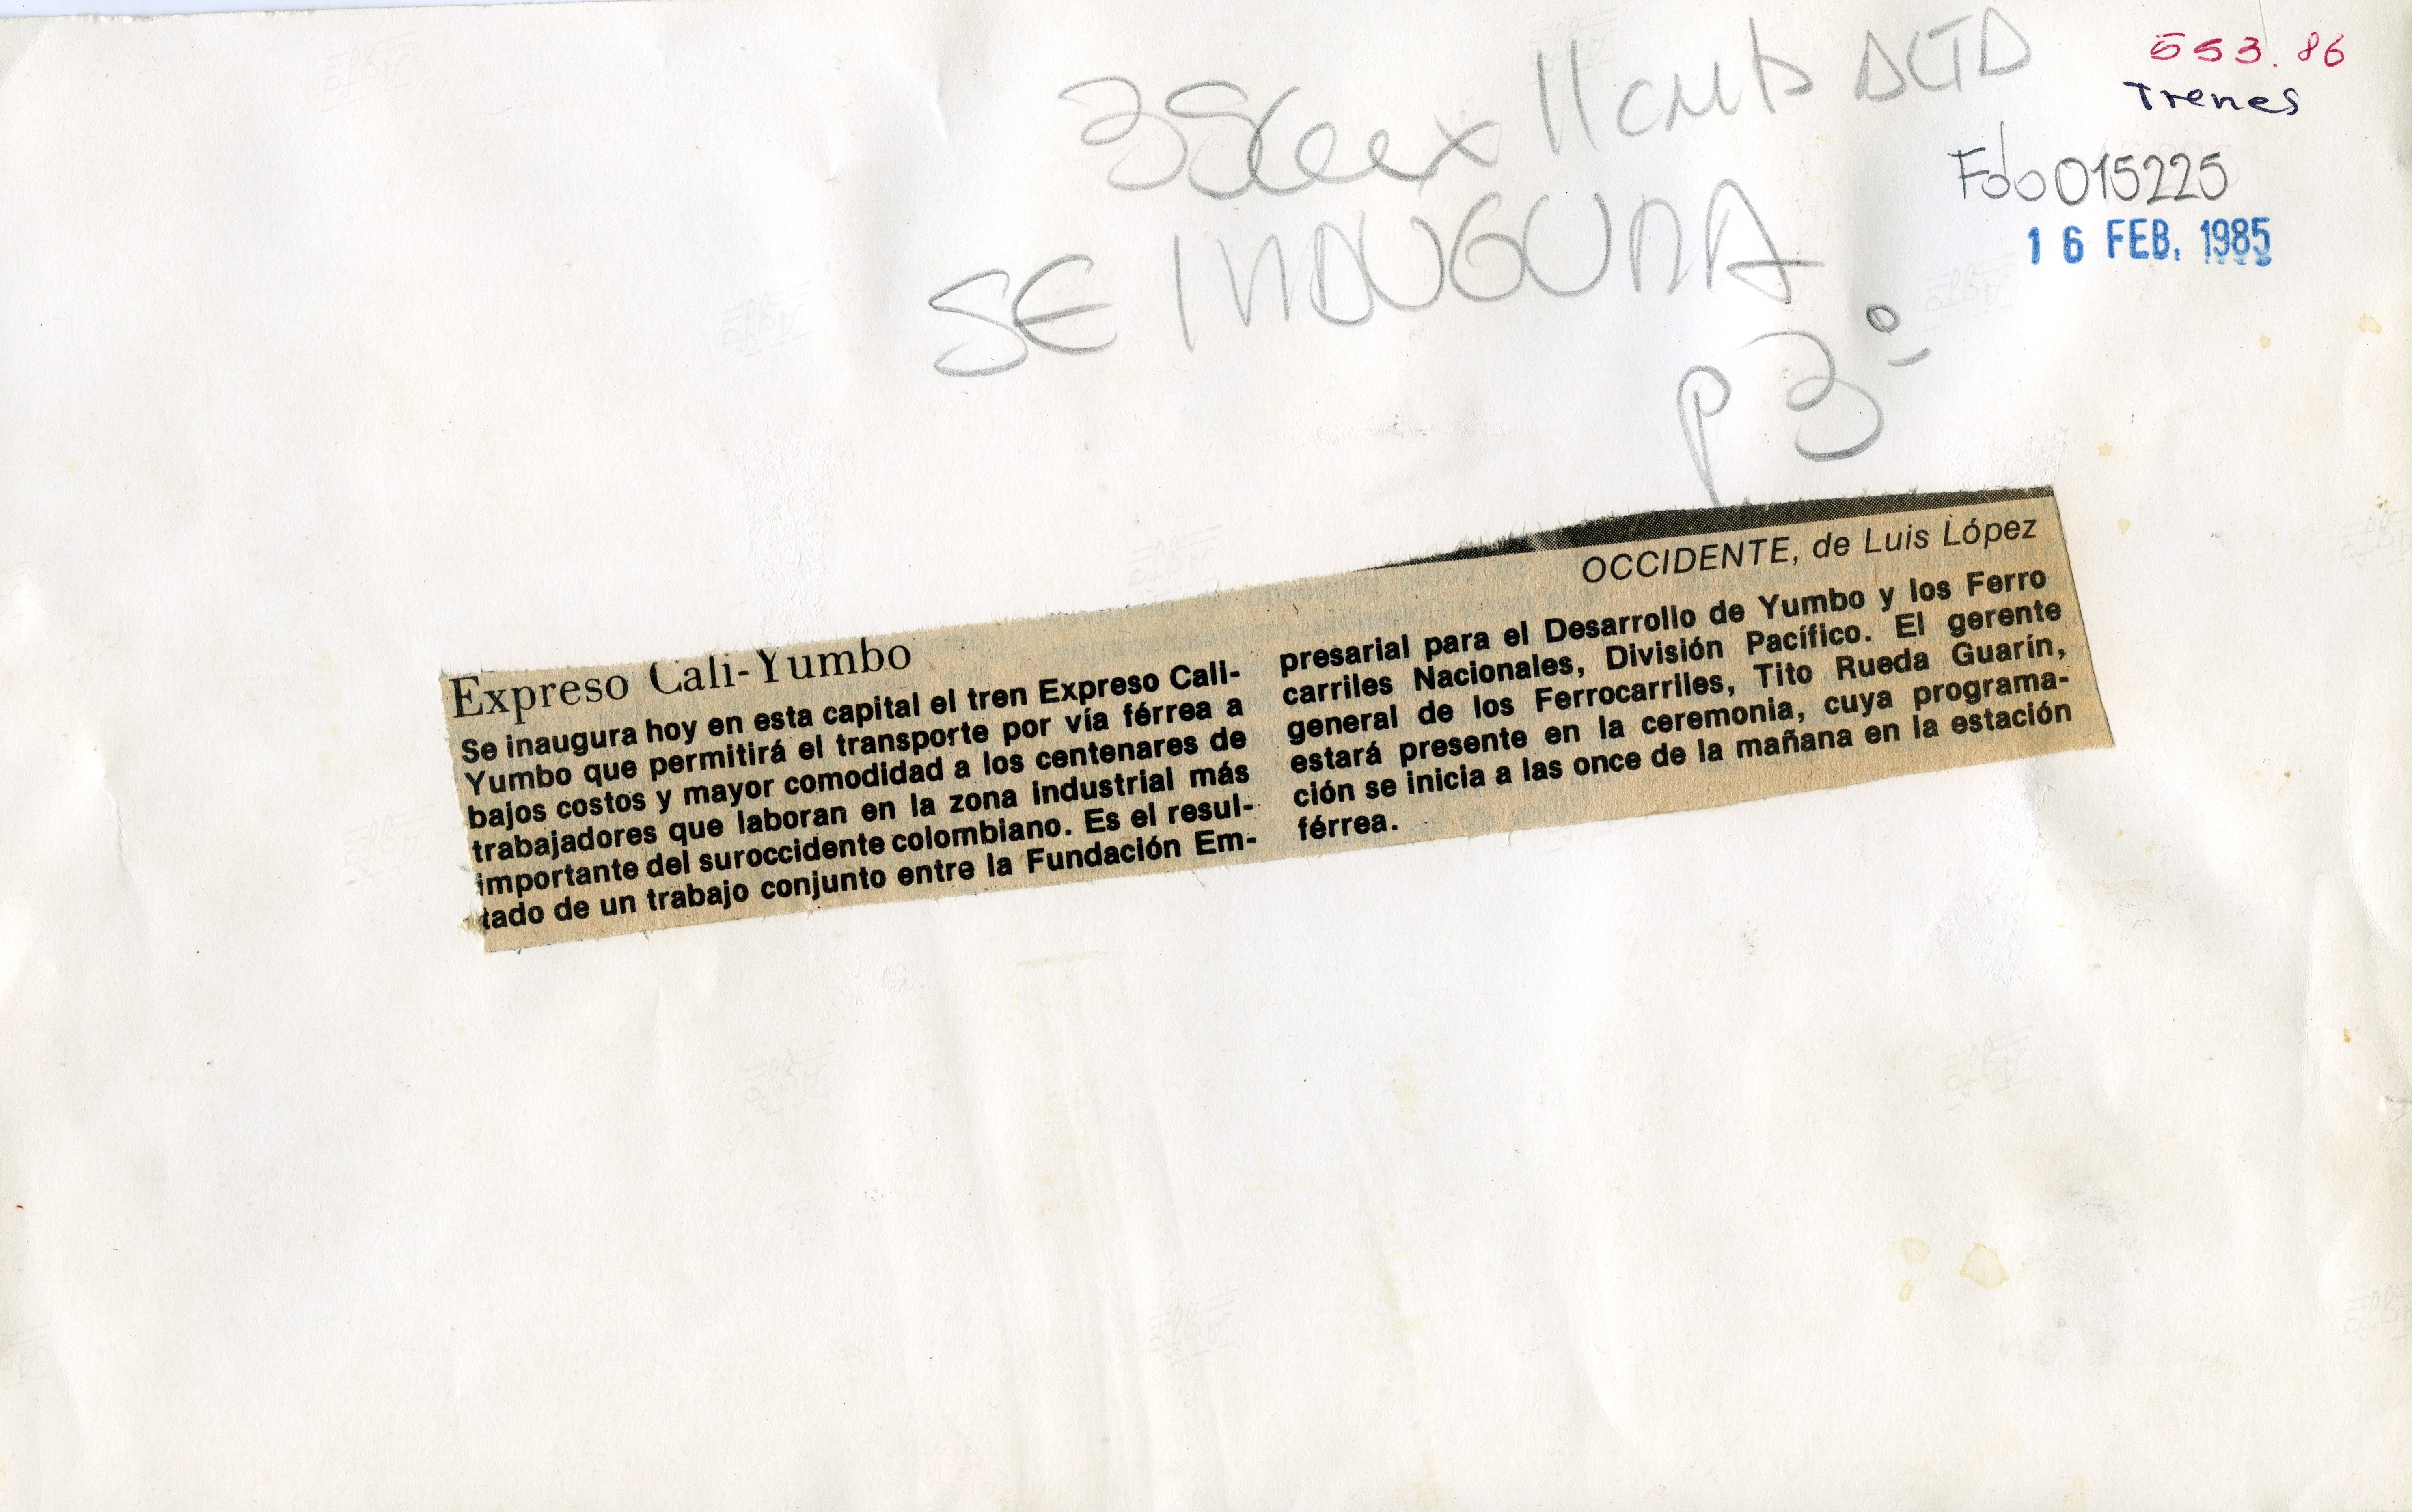 553.86
Trenes
Fdo 015225
16 FEB. 1985
11 cmts ALTO
SE INAUGURA
P 3º
OCCIDENTE, de Luis López
Expreso Cali-Yumbo
Se inaugura hoy en esta capital el tren Expreso Cali-
Yumbo que permitirá el transporte por vía férrea a
bajos costos y mayor comodidad a los centenares de
trabajadores que laboran en la zona industrial más
importante del suroccidente colombiano. Es el resul-
tado de un trabajo conjunto entre la Fundación Em-
presarial para el Desarrollo de Yumbo y los Ferro
carriles Nacionales, División Pacífico. El gerente
general de los Ferrocarriles, Tito Rueda Guarín,
estará presente en la ceremonia, cuya programa-
ción se inicia a las once de la mañana en la estación
férrea.